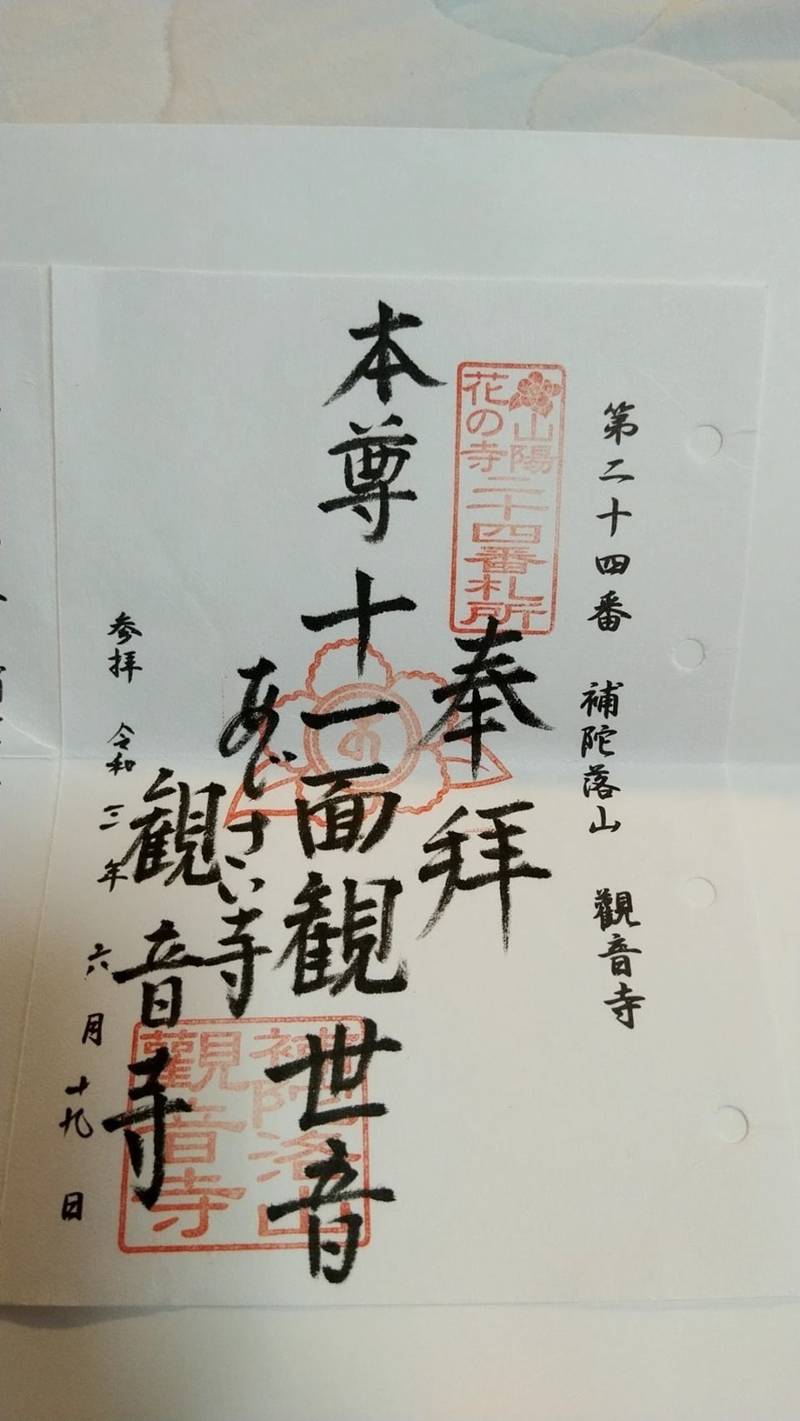 第二十四番 補陀落山 觀音寺
山陽
花の寺
二十四番札所
奉拝
本尊十一面観世音
あじさい寺
観音寺
補陀洛山
觀音寺
参拝 令和三年六月十九日